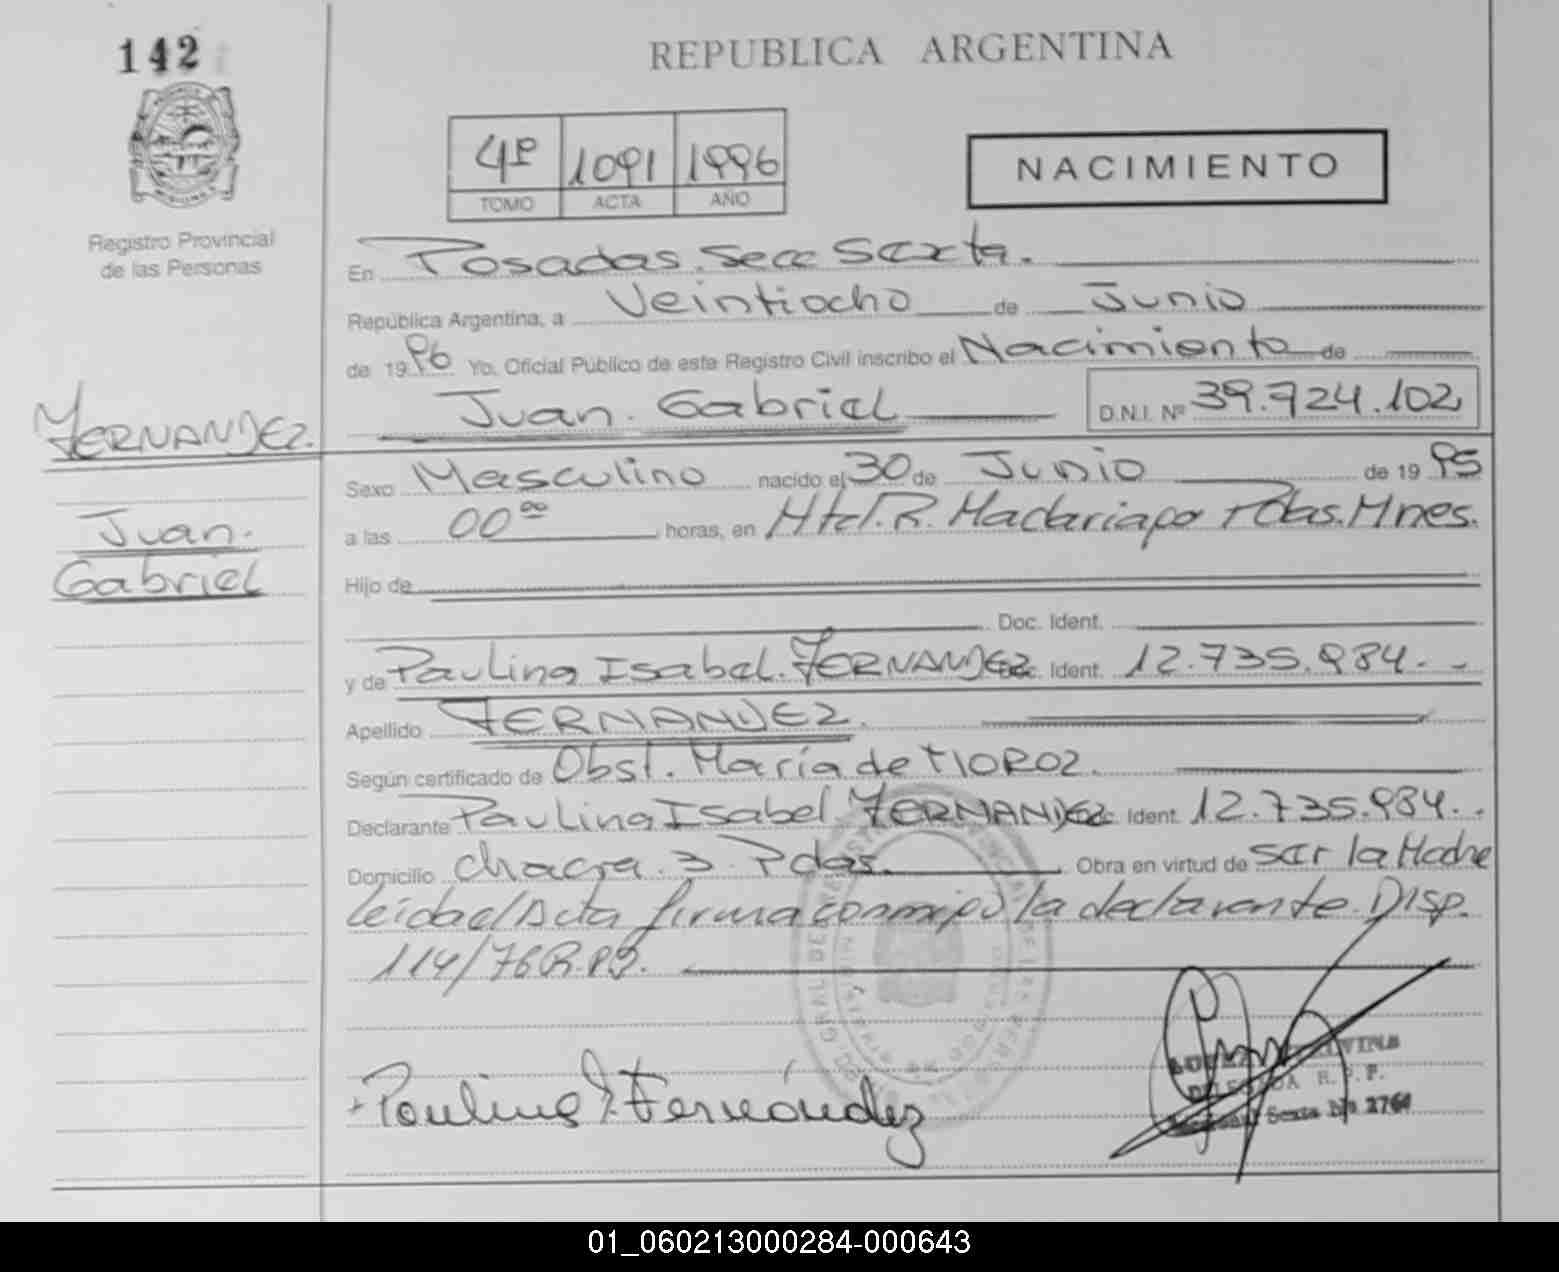 142
REPUBLICA ARGENTINA
4º 1091 1996
TOMO ACTA AÑO
NACIMIENTO
Registro Provincial
de las Personas
En Posadas. Secc Sexta.
República Argentina, a Veintiocho de Junio
de 1996 Yo, Oficial Público de este Registro Civil inscribo el Nacimiento de
Juan. Gabriel D.N.I. Nº 39.724.102
FERNANDEZ.
Juan.
Gabriel
Sexo Masculino nacido el 30 de Junio de 1995
a las 00⁰⁰ horas, en Htal. R. Madariaga Pdas. Mnes.
Hijo de
Doc. Ident.
y de Paulina Isabel. FERNANDEZ Doc. Ident. 12.735.984.
Apellido FERNANDEZ.
Según certificado de Obst. María de MOROZ.
Declarante Paulina Isabel FERNANDEZ Doc. Ident. 12.735.984.
Domicilio Chacra. 3. Pdas. Obra en virtud de ser la Madre
leída el Acta firma conmigo la declarante. Disp.
114/76 R.P.P.
Paulina I. Fernández
DELEGADA R. P. P.
Sexta Nº 2764
01_060213000284-000643